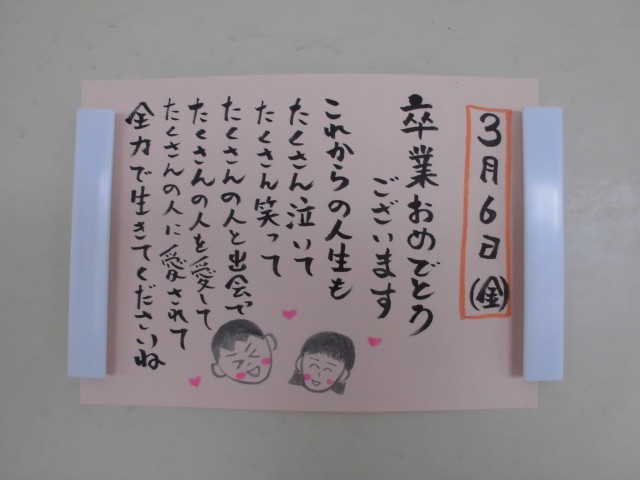 3月6日(金)
卒業おめでとう
ございます
これからの人生も
たくさん泣いて
たくさん笑って
たくさんの人と出会って
たくさんの人を愛して
たくさんの人に愛されて
全力で生きてくださいね